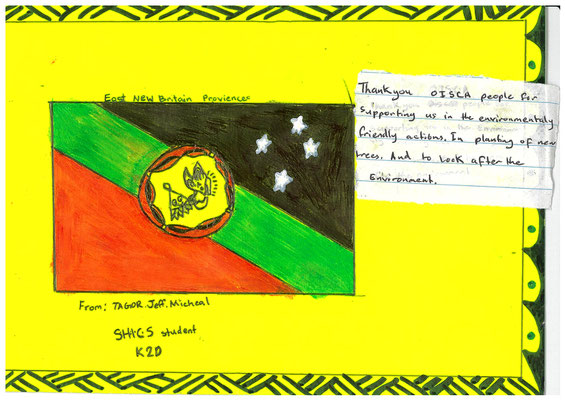 East NEW Britain Proviences
Thankyou OISCA people for
supporting us in the environmentaly
friendly actions. In planting of new
trees. And to look after the
Environment.
From: TAGOR.Jeff.Micheal
student
K2D